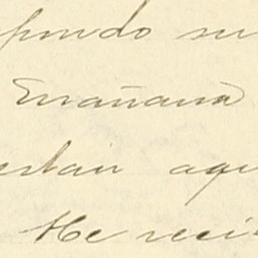 pondo su
Mañana
estan aqu
He reci